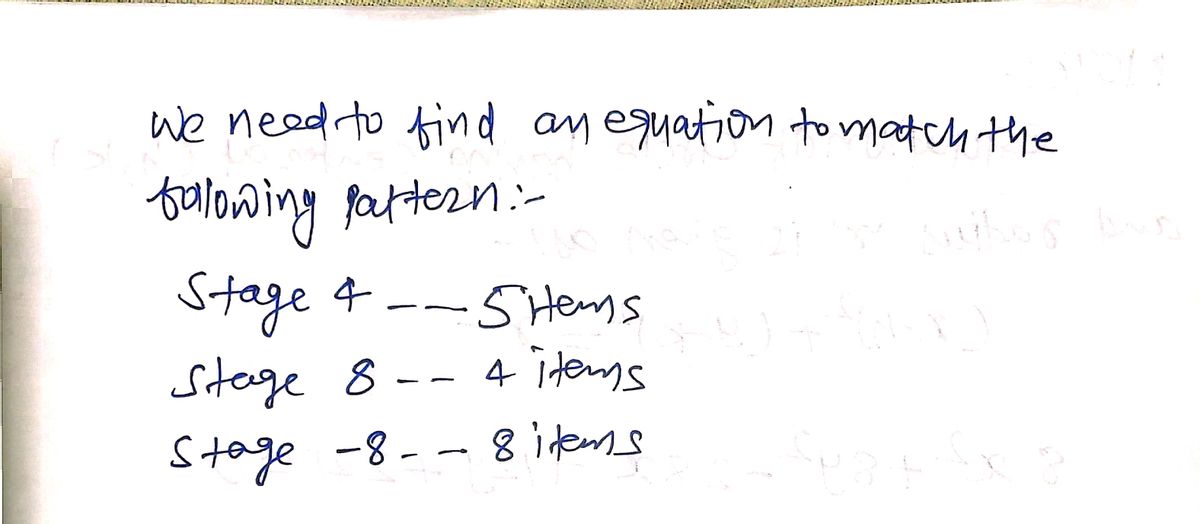 We need to find an equation to match the
following pattern:-
Stage 4 --- 5 items
Stage 8 -- 4 items
Stage -8 -- 8 items